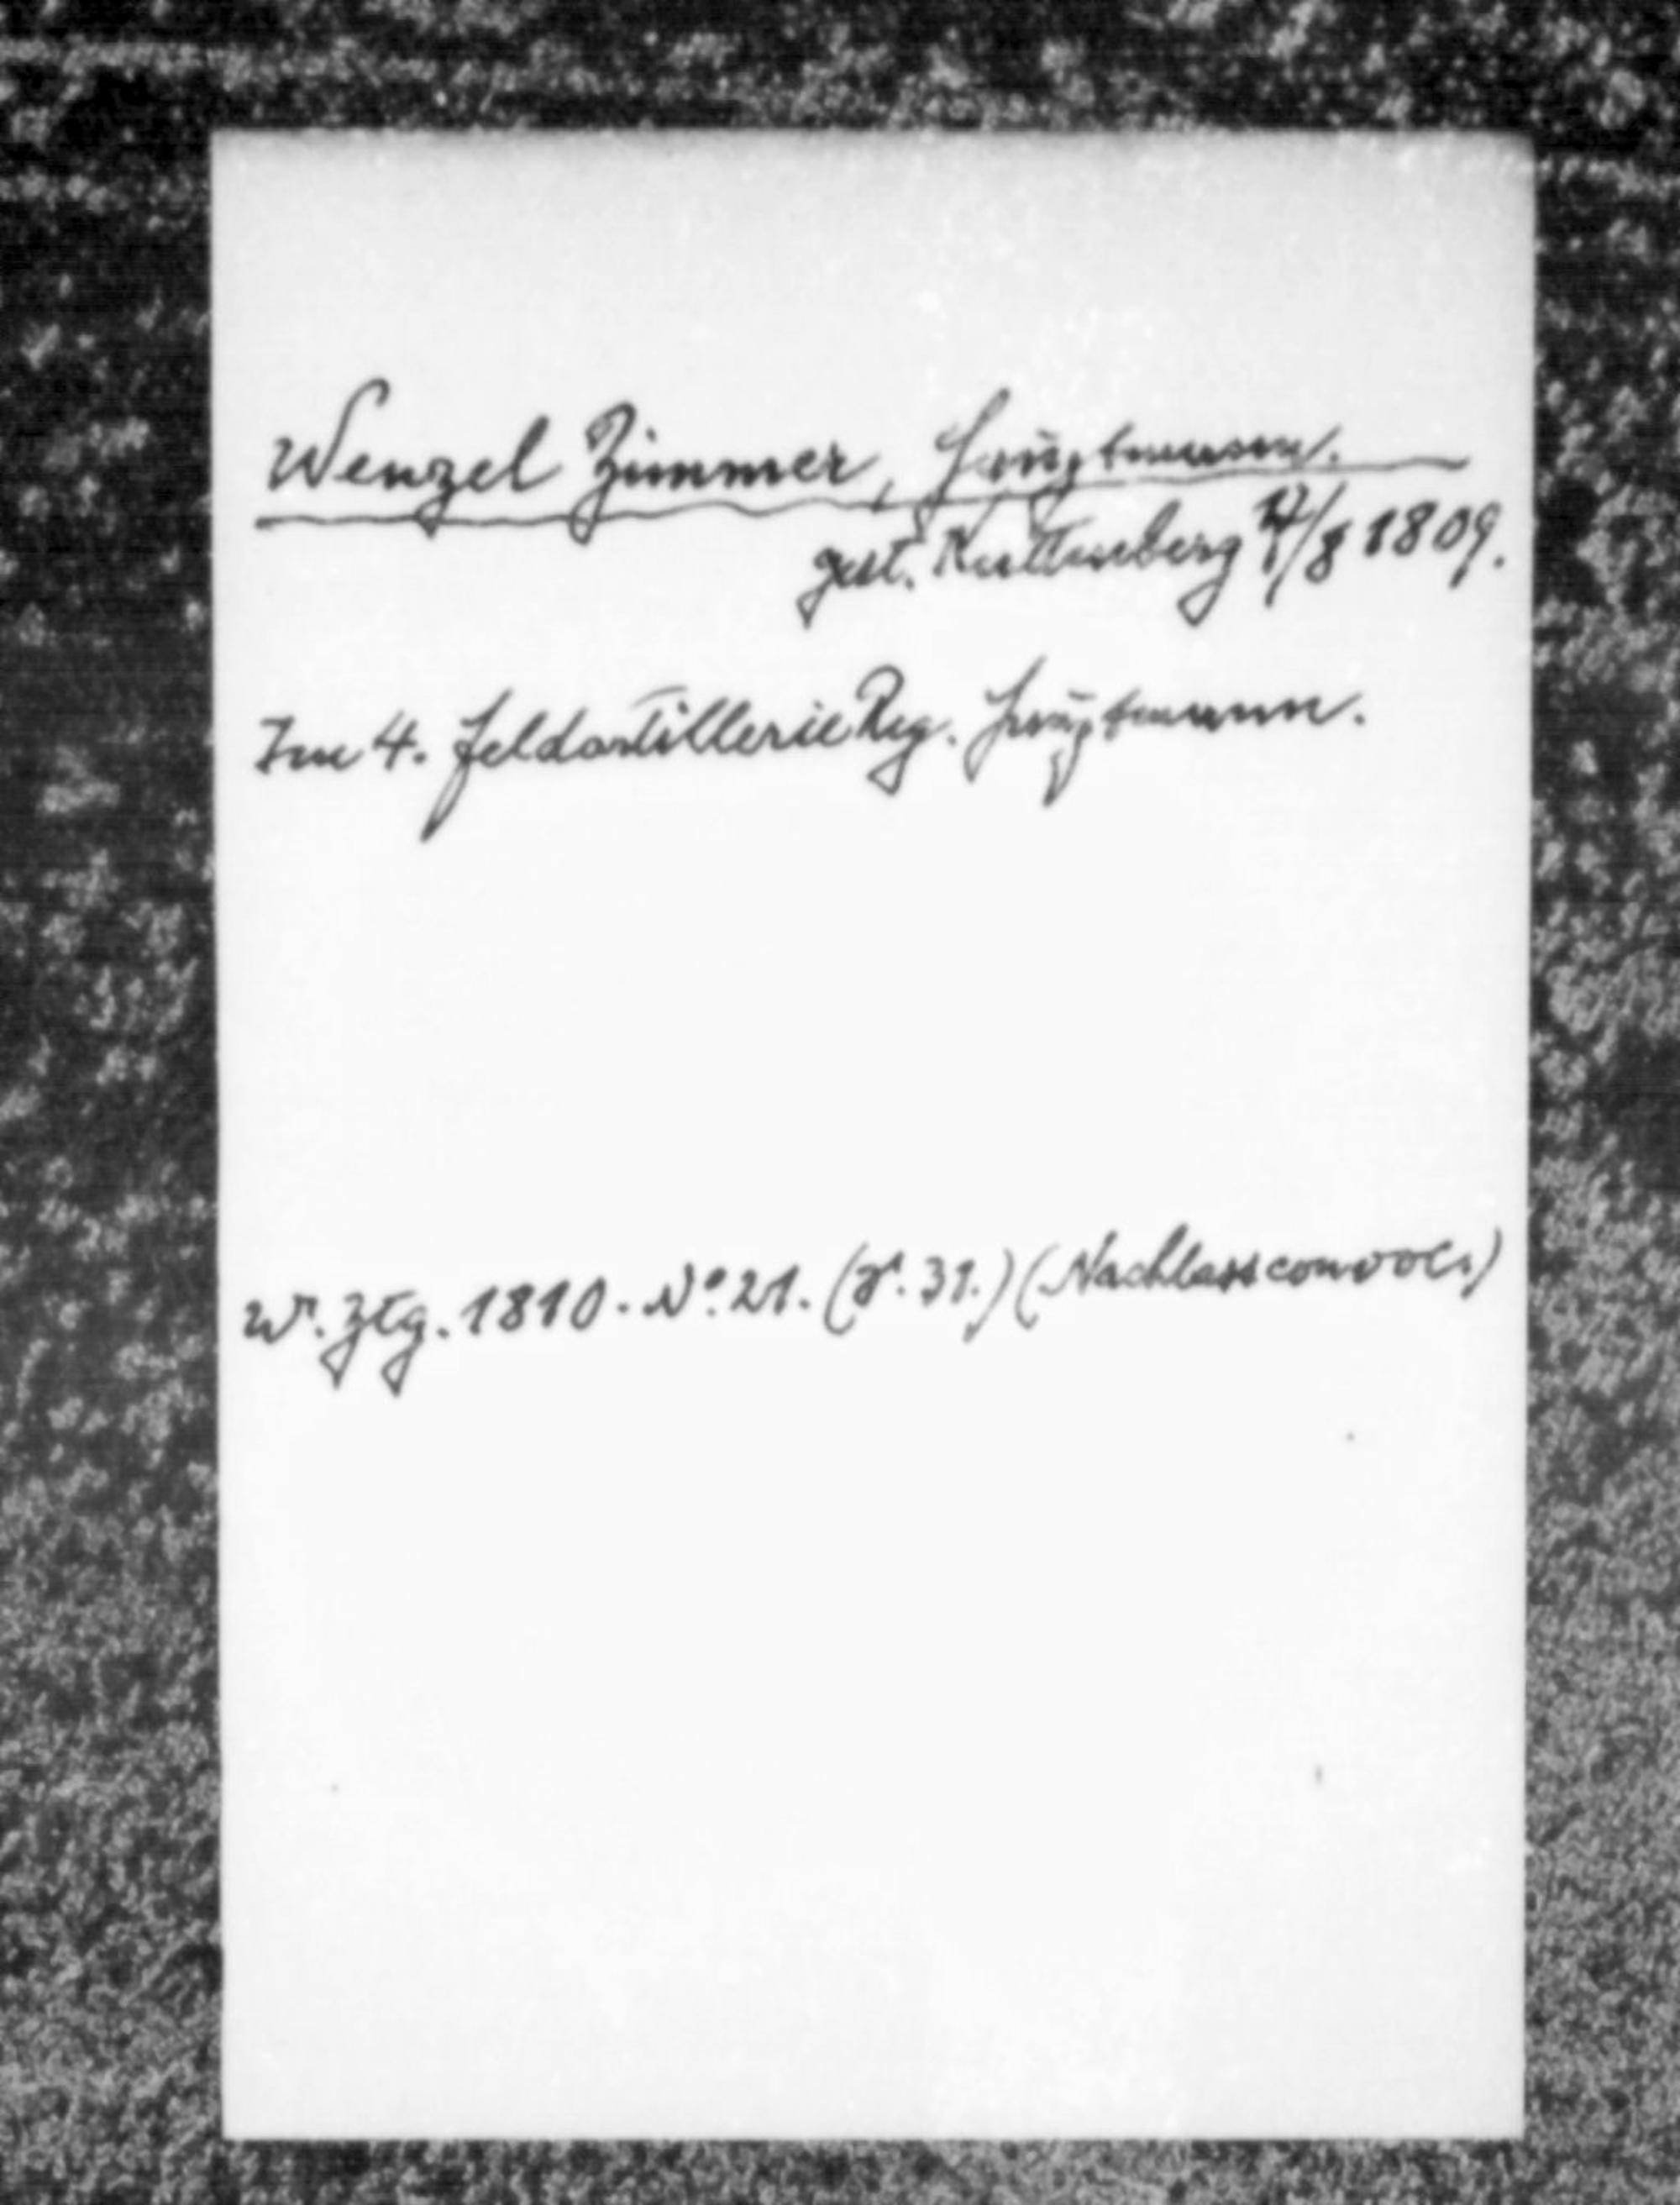 Wenzel Zimmer, Hauptmann.
gest. Kuttenberg /8 1809.
Im 4. Feldartillerie Reg. Hauptmann.
Wr. Ztg. 1810. No. 21. (S. 31.) (Nachlassconvoc.)